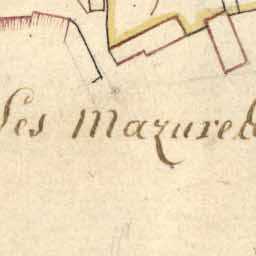 les Mazurel